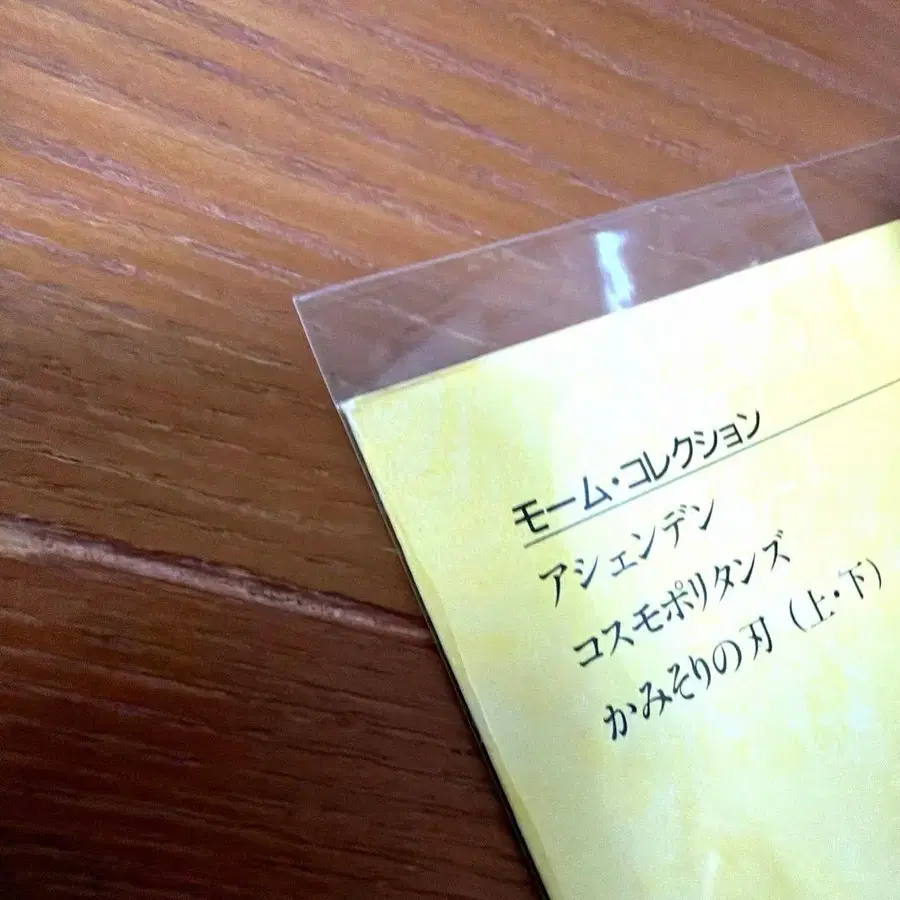 モーム・コレクション
アシェンデン
コスモポリタンズ
かみそりの刃（上・下）